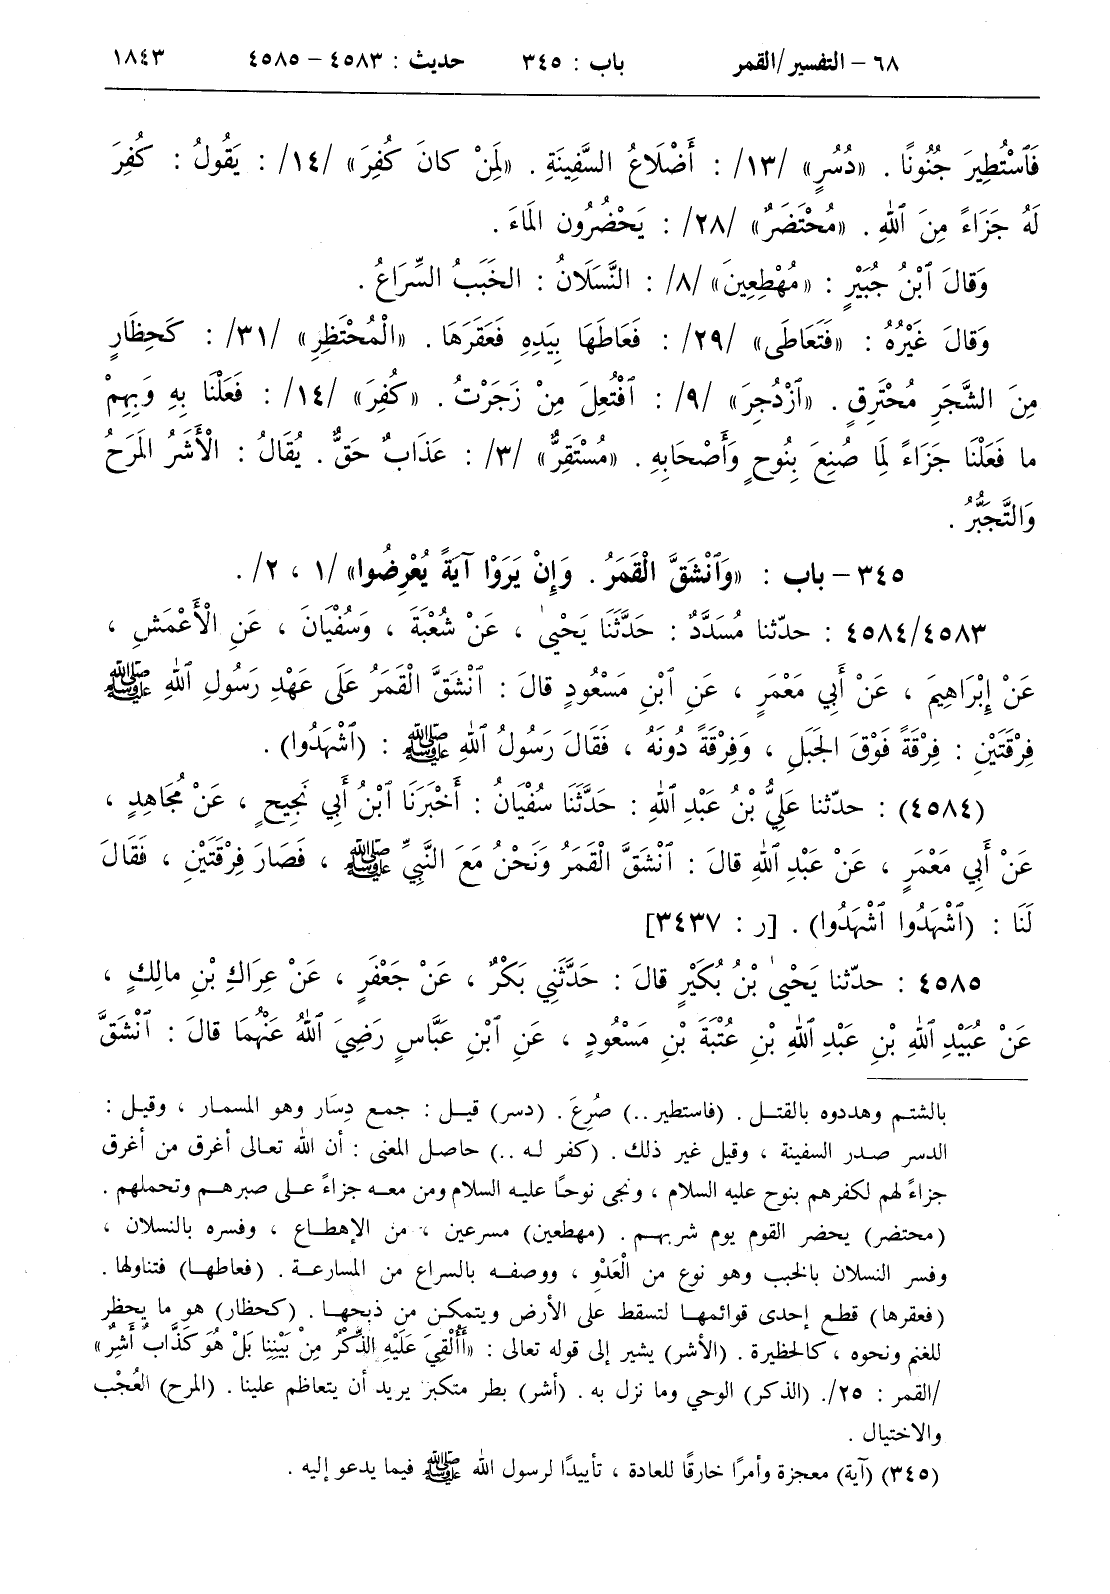 ٦٨ – التفسير/القمر باب : ٣٤٥ حديث : ٤٥٨٣ – ٤٥٨٥ ١٨٤٣
فَٱسْتُطِيرَ جُنُونًا . «دُسُرٍ» /١٣/ : أَضْلَاعُ السَّفِينَةِ . «لِمَنْ كانَ كُفِرَ» /١٤/ : يَقُولُ : كُفِرَ
لَهُ جَزَاءً مِنَ ٱللهِ . «مُحْتَضَرٌ» /٢٨/ : يَحْضُرُون المَاءَ .
وَقالَ ٱبْنُ جُبَيْرٍ : «مُهْطِعِينَ» /٨/ : النَّسَلَانُ : الخَبَبُ السِّرَاعُ .
وَقالَ غَيْرُهُ : «فَتَعَاطَى» /٢٩/ : فَعَاطَهَا بِيَدِهِ فَعَقَرَهَا . «الْمُحْتَظِرِ» /٣١/ : كَحِظَارٍ
مِنَ الشَّجَرِ مُحْتَرِقٍ . «ٱزْدُجِرَ» /٩/ : ٱفْتُعِلَ مِنْ زَجَرْتُ . «كُفِرَ» /١٤/ : فَعَلْنَا بِهِ وَبِهِمْ
ما فَعَلْنَا جَزَاءً لِمَا صُنِعَ بِنُوحٍ وَأَصْحَابِهِ . «مُسْتَقِرٌّ» /٣/ : عَذَابٌ حَقٌّ . يُقَالُ : الْأَشَرُ المَرَحُ
وَالتَّجَبُّرُ .
٣٤٥ – باب : «وَٱنْشَقَّ الْقَمَرُ . وَإِنْ يَرَوْا آيَةً يُعْرِضُوا» /١ ، ٢/ .
٤٥٨٤/٤٥٨٣ : حدّثنا مُسَدَّدٌ : حَدَّثَنَا يَحْيىٰ ، عَنْ شُعْبَةَ ، وَسُفْيَانَ ، عَنِ الْأَعْمَشِ ،
عَنْ إِبْرَاهِيمَ ، عَنْ أَبِي مَعْمَرٍ ، عَنِ ٱبْنِ مَسْعُودٍ قالَ : ٱنْشَقَّ الْقَمَرُ عَلَى عَهْدِ رَسُولِ ٱللهِ ﷺ
فِرْقَتَيْنِ : فِرْقَةً فَوْقَ الجَبَلِ ، وَفِرْقَةً دُونَهُ ، فَقالَ رَسُولُ ٱللهِ ﷺ : (ٱشْهَدُوا) .
(٤٥٨٤) : حدّثنا عَلِيُّ بْنُ عَبْدِ ٱللهِ : حَدَّثَنَا سُفْيَانُ : أَخْبَرَنَا ٱبْنُ أَبِي نَجِيحٍ ، عَنْ مُجَاهِدٍ ،
عَنْ أَبِي مَعْمَرٍ ، عَنْ عَبْدِ ٱللهِ قالَ : ٱنْشَقَّ الْقَمَرُ وَنَحْنُ مَعَ النَّبِيِّ ﷺ ، فَصَارَ فِرْقَتَيْنِ ، فَقَالَ
لَنَا : (ٱشْهَدُوا ٱشْهَدُوا) . [ر : ٣٤٣٧]
٤٥٨٥ : حدّثنا يَحْيىٰ بْنُ بُكَيْرٍ قالَ : حَدَّثَنِي بَكْرٌ ، عَنْ جَعْفَرٍ ، عَنْ عِرَاكِ بْنِ مالِكٍ ،
عَنْ عُبَيْدِ ٱللهِ بْنِ عَبْدِ ٱللهِ بْنِ عُتْبَةَ بْنِ مَسْعُودٍ ، عَنِ ٱبْنِ عَبَّاسٍ رَضِيَ ٱللهُ عَنْهُمَا قالَ : ٱنْشَقَّ
بالشتم وهددوه بالقتل . (فاستطير ..) صُرِعَ . (دسر) قيل : جمع دِسَار وهو المسمار ، وقيل :
الدسر صدر السفينة ، وقيل غير ذلك . (كفر له ..) حاصل المعنى : أن الله تعالى أغرق من أغرق
جزاءً لهم لكفرهم بنوح عليه السلام ، ونجى نوحًا عليه السلام ومن معه جزاءً على صبرهم وتحملهم .
(محتضر) يحضر القوم يوم شربهم . (مهطعين) مسرعين ، من الإهطاع ، وفسره بالنسلان ،
وفسر النسلان بالخبب وهو نوع من الْعَدْو ، ووصفه بالسراع من المسارعة . (فعاطها) فتناولها .
(فعقرها) قطع إحدى قوائمها لتسقط على الأرض ويتمكن من ذبحها . (كحظار) هو ما يحظر
للغنم ونحوه ، كالحظيرة . (الأشر) يشير إلى قوله تعالى : «أَأُلْقِيَ عَلَيْهِ الذِّكْرُ مِنْ بَيْنِنَا بَلْ هُوَ كَذَّابٌ أَشِرٌ»
/القمر : ٢٥/. (الذكر) الوحي وما نزل به . (أشر) بطر متكبر يريد أن يتعاظم علينا . (المرح) العُجْب
والاختيال .
(٣٤٥) (آية) معجزة وأمرًا خارقًا للعادة ، تأييدًا لرسول الله ﷺ فيما يدعو إليه .